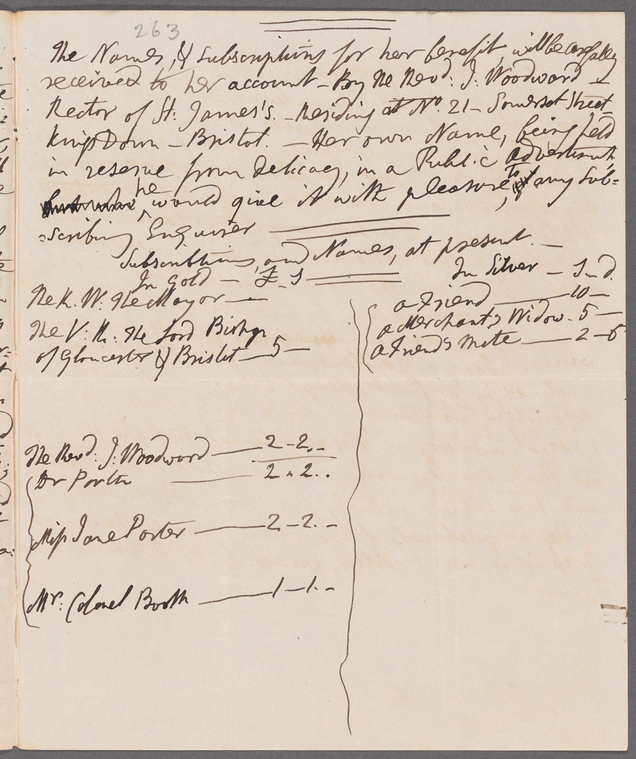 263
The Names, & Subscriptions for her benefit, will be carefully
received to her account – By the Revd: J. Woodward –
Rector of St. James's. – Residing at No. 21 – Somerset Street
KingsDown – Bristol. – Her own Name, being held
in reserve from delicacy, in a Public Advertisement
he would give it with pleasure, to any Sub=
=scribing Enquirer
Subscriptions, and Names, at present. –
In Gold – £ – S
In Silver – S – d
The R. W. The Mayor –
The V. R. The Lord Bishop
of Gloucester & Bristol – 5 –
a Friend – 10 –
a Merchant's Widow – 5 –
a Friend's Mite – 2 – 6
The Revd: J. Woodward – 2 – 2 . –
Dr Porter – 2 . 2 . .
Miss Jane Porter – 2 – 2 . –
Mr: Colonel Booth – 1 – 1 . –